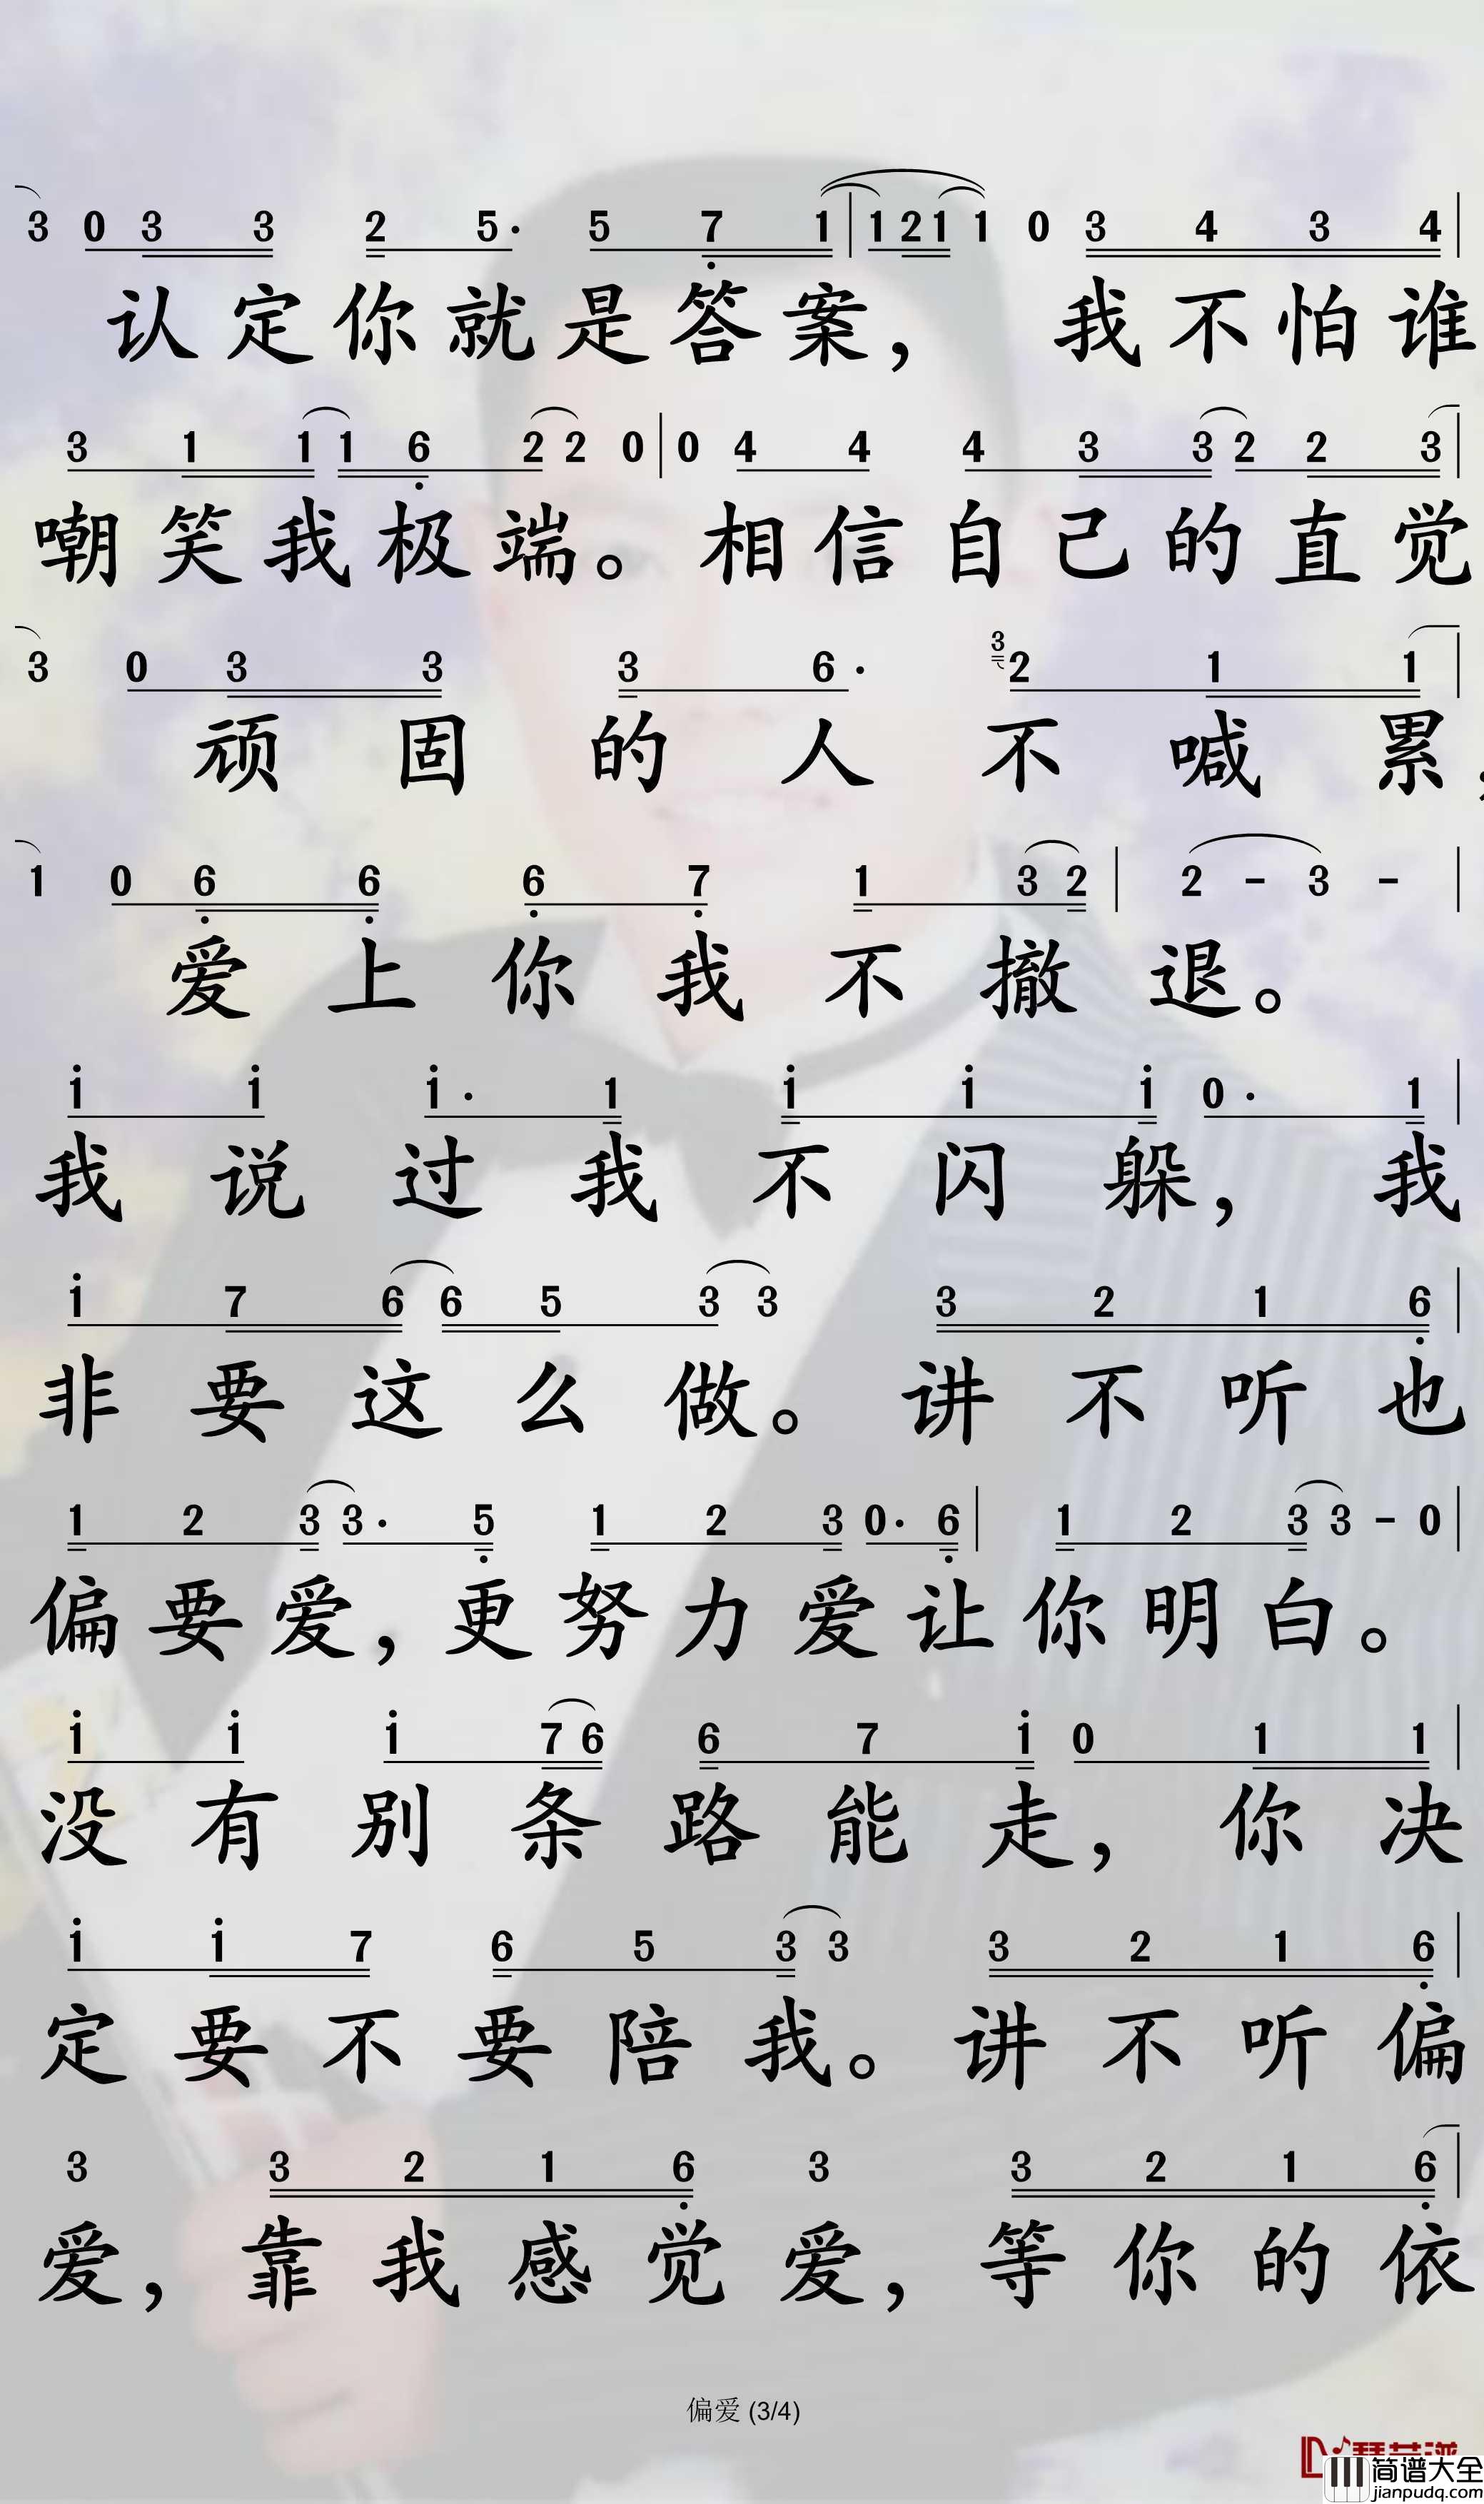 3 0 3 3 2 5· 5 7 1 | 1 2 1 1 0 3 4 3 4 |
认定你就是答案， 我不怕谁
3 1 1 1 6 2 2 0 | 0 4 4 4 3 3 2 2 3 |
嘲笑我极端。相信自己的直觉
3 0 3 3 3 6· 3 2 1 1 |
顽固的人不喊累，
1 0 6 6 6 7 1 3 2 | 2 - 3 - |
爱上你我不撤退。
i i i· 1 i i i 0· 1 |
我说过我不闪躲，我
i 7 6 6 5 3 3 3 2 1 6 |
非要这么做。讲不听也
1 2 3 3· 5 1 2 3 0· 6 | 1 2 3 3 - 0 |
偏要爱，更努力爱让你明白。
i i i 7 6 6 7 i 0 1 1 |
没有别条路能走，你决
i i 7 6 5 3 3 3 2 1 6 |
定要不要陪我。讲不听偏
3 3 2 1 6 3 3 2 1 6 |
爱，靠我感觉爱，等你的依
偏爱 (3/4)
简谱大全
jianpudq.com